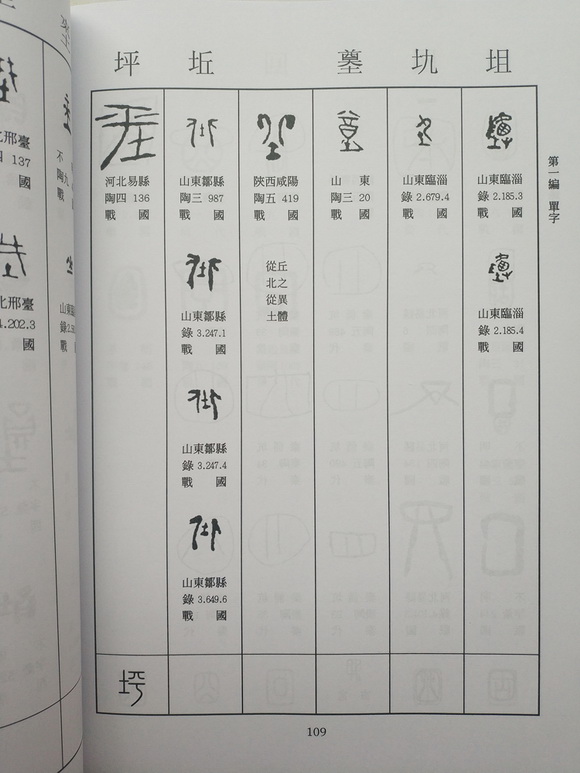 第一編 單字
坥
山東臨淄
錄 2.185.3
戰國
山東臨淄
錄 2.185.4
戰國
山東臨淄
錄 2.679.4
戰國
山東
陶三 20
戰國
陝西咸陽
陶五 419
戰國
丘之異體
從北從土
坵
山東鄒縣
陶三 987
戰國
山東鄒縣
錄 3.247.1
戰國
山東鄒縣
錄 3.247.4
戰國
山東鄒縣
錄 3.649.6
戰國
坪
河北易縣
陶四 136
戰國
坪
109
邢臺
137
國
邢臺
.202.3
國